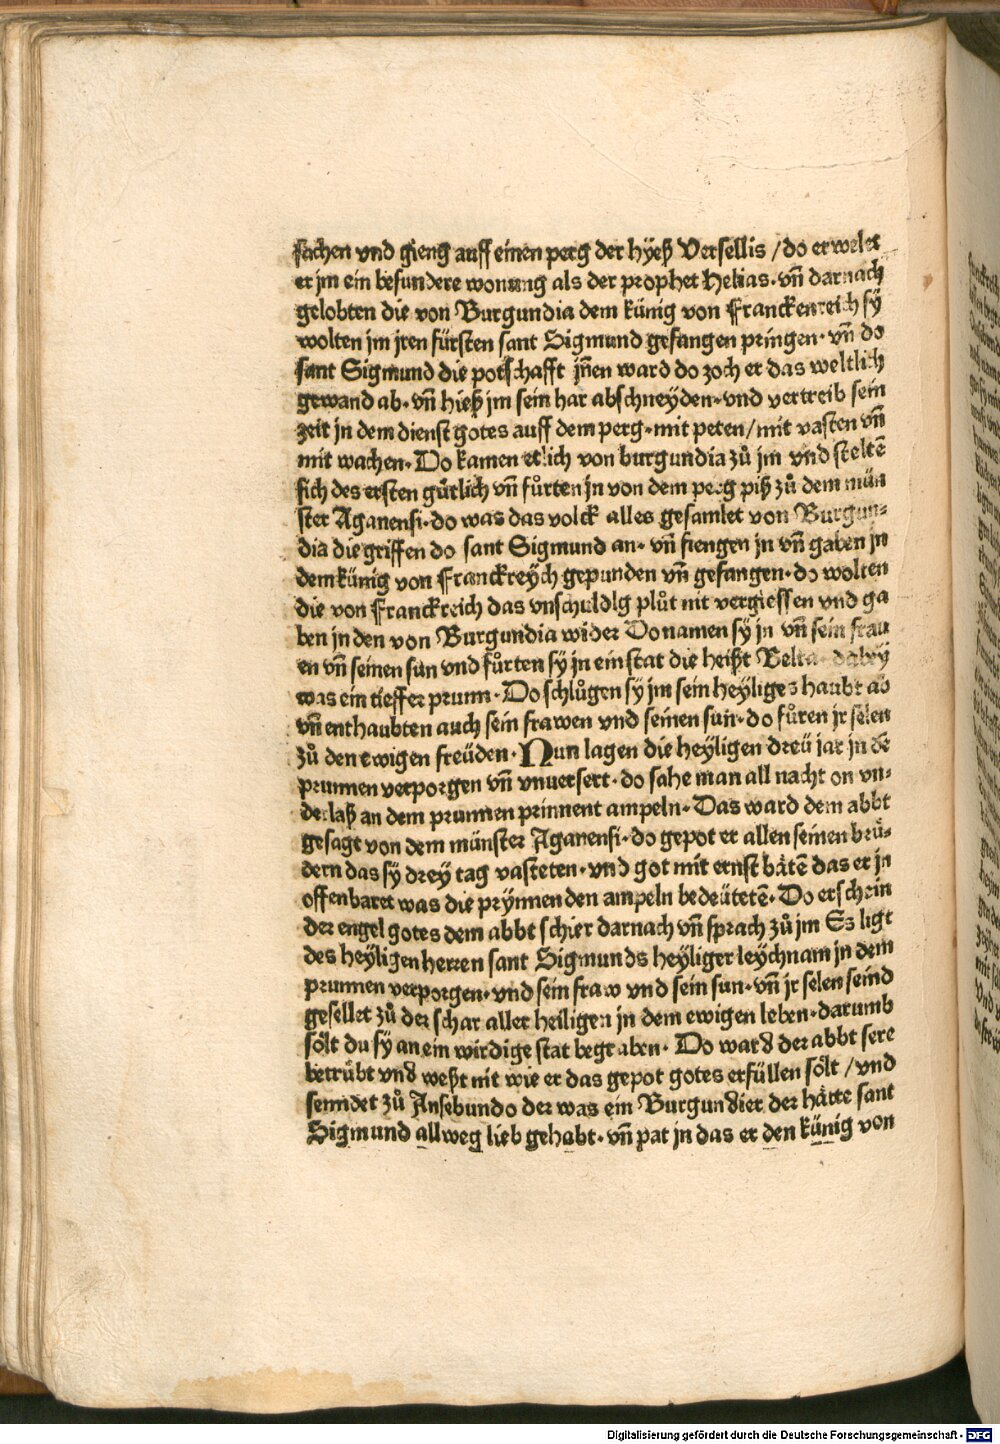 sachen vnd gieng auff einen perg der hyeß Versellis / do erwelet
er jm ein besundere wonung als der prophet Helias · vñ darnach
gelobten die von Burgundia dem künig von Franckenreich sÿ
wolten jm jren fürsten sant Sigmund gefangen pringen · vñ do
sant Sigmund die potschafft jñen ward do zoch er das weltlich
gewand ab · vñ hieß jm sein har abschneyden · vnd vertreib sein
zeit jn dem dienst gotes auff dem perg · mit peten / mit vasten vñ
mit wachen · Do kamen etlich von burgundia zů jm vnd steltẽ
sich des ersten gütlich vñ fůrten jn von dem perg piß zů dem mün
ster Aganensi · do was das volck alles gesamlet von Burgun⸗
dia die griffen do sant Sigmund an · vñ fiengen jn vñ gaben jn
dem künig von Franckreÿch gepunden vñ gefangen · do wolten
die von Franckreich das vnschuldig plůt nit vergiessen vnd ga
ben jn den von Burgundia wider Do namen sÿ jn vñ sein frau
en vñ seinen sun vnd fůrten sÿ jn ein stat die heißt Belta · dabeÿ
was ein tieffer prunn · Do schlůgen sÿ jm sein heÿliges haubt ab
vñ enthaubten auch sein frawen vnd seinen sun · do fůren jr selen
zů den ewigen freüden · Nun lagen die heÿligen dreü jar jn dẽ
prunnen verporgen vñ vnuersert · do sahe man all nacht on vn⸗
derlaß an dem prunnen prinnent ampeln · Das ward dem abbt
gesagt von dem münster Aganensi · do gepot er allen seinen brů⸗
dern das sÿ drey tag vasteten · vnd got mit ernst bätẽ das er jn
offenbaret was die prÿnnenden ampeln bedeütetẽ · Do erschein
der engel gotes dem abbt schier darnach vñ sprach zů jm Es ligt
des heÿligen herren sant Sigmunds heÿliger leÿchnam jn dem
prunnen verporgen · vnd sein fraw vnd sein sun · vñ jr selen seind
gesellet zů der schar aller heiligen jn dem ewigen leben · darumb
sölt du sÿ an ein wirdige stat begraben · Do ward der abbt sere
betrübt vnd weßt nit wie er das gepot gotes erfüllen sölt / vnd
senndet zů Ansebundo der was ein Burgundier der hätte sant
Sigmund allweg lieb gehabt · vñ pat jn das er den künig von
Digitalisierung gefördert durch die Deutsche Forschungsgemeinschaft - DFG